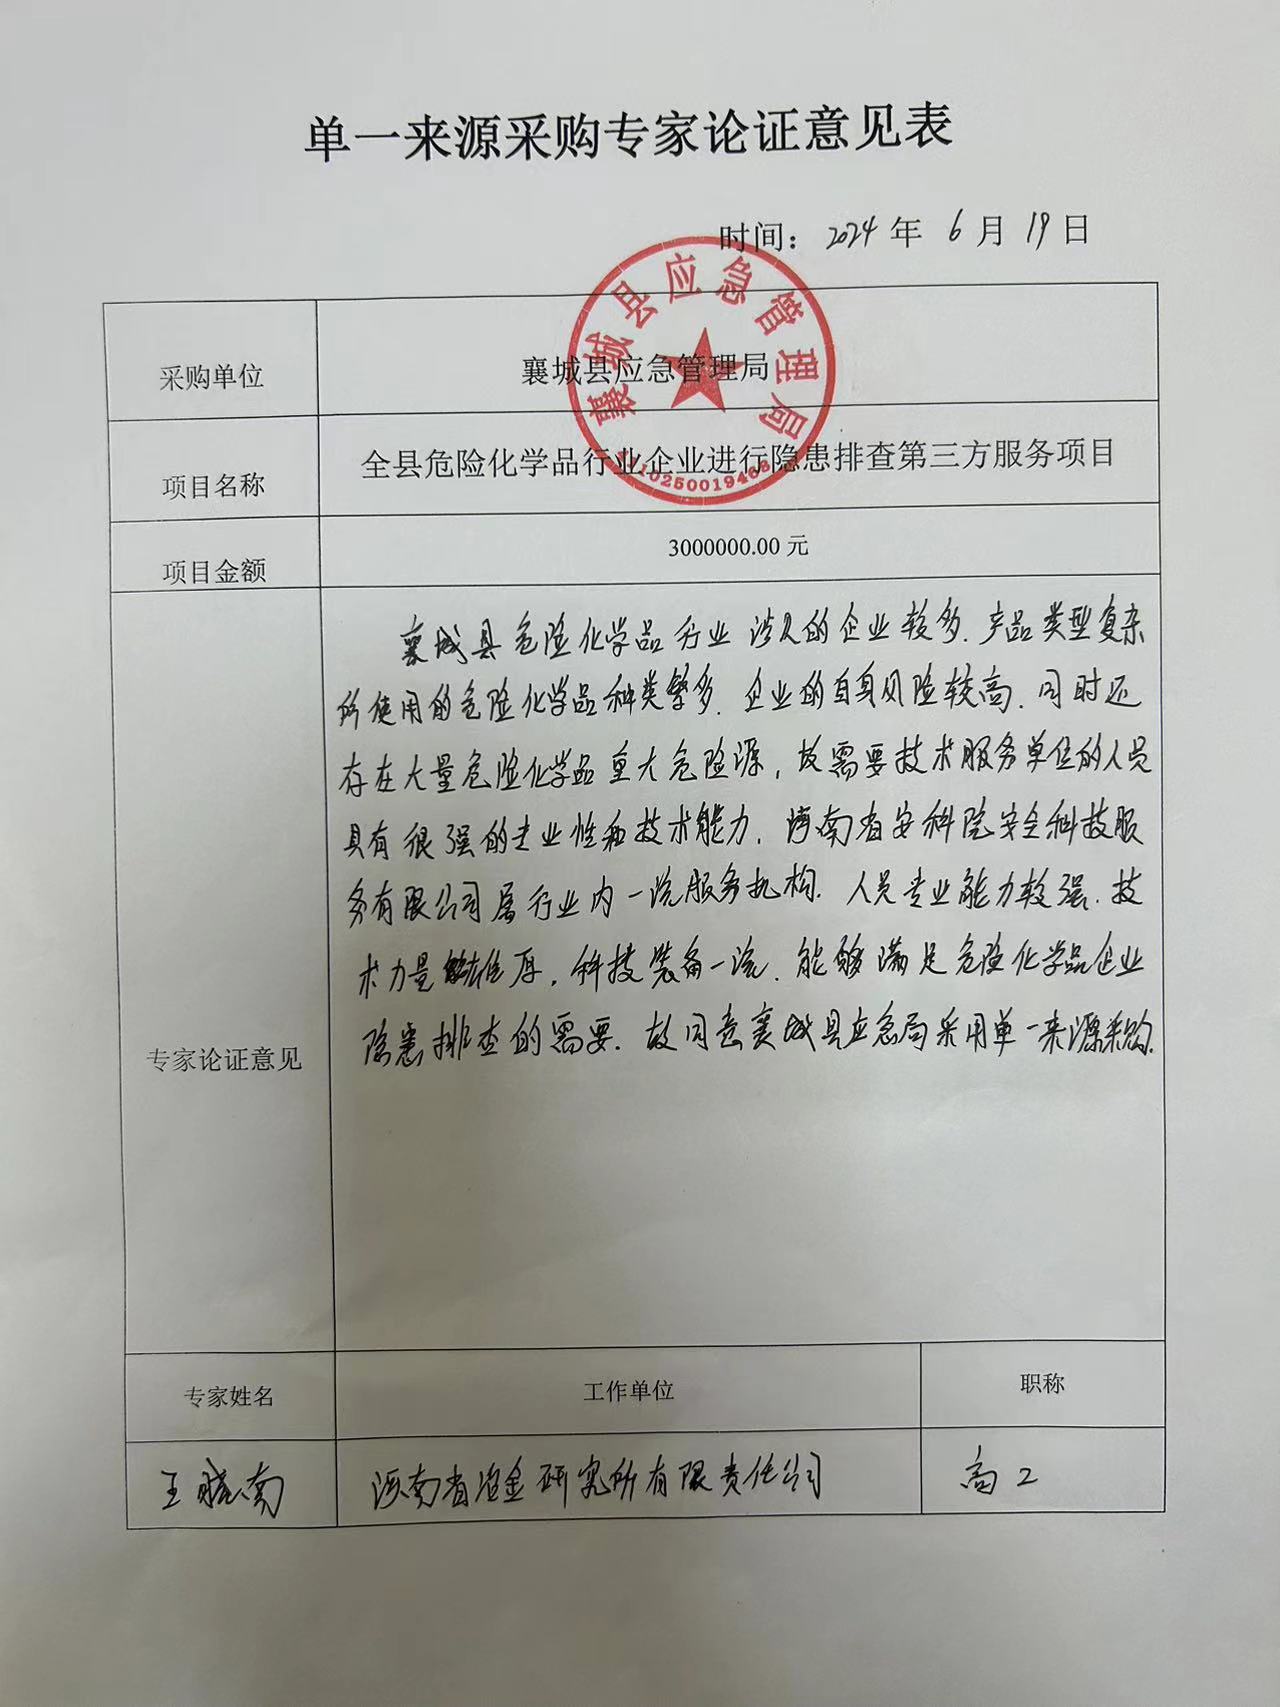 单一来源采购专家论证意见表
时间：2024 年 6 月 19 日
襄城县应急管理局
采购单位
襄城县应急管理局
项目名称
全县危险化学品行业企业进行隐患排查第三方服务项目
10250019468
项目金额
3000000.00 元
襄城县危险化学品行业涉及的企业较多.产品类型复杂
所使用的危险化学品种类繁多.企业的自身风险较高.同时还
存在大量危险化学品重大危险源，故需要技术服务单位的人员
具有很强的专业性和技术能力.河南省安科院安全科技服
务有限公司属行业内一流服务机构.人员专业能力较强.技
术力量雄厚，科技装备一流.能够满足危险化学品企业
隐患排查的需要.故同意襄城县应急局采用单一来源采购.
专家论证意见
专家姓名
工作单位
职称
王晓南
河南省冶金研究所有限责任公司
高工